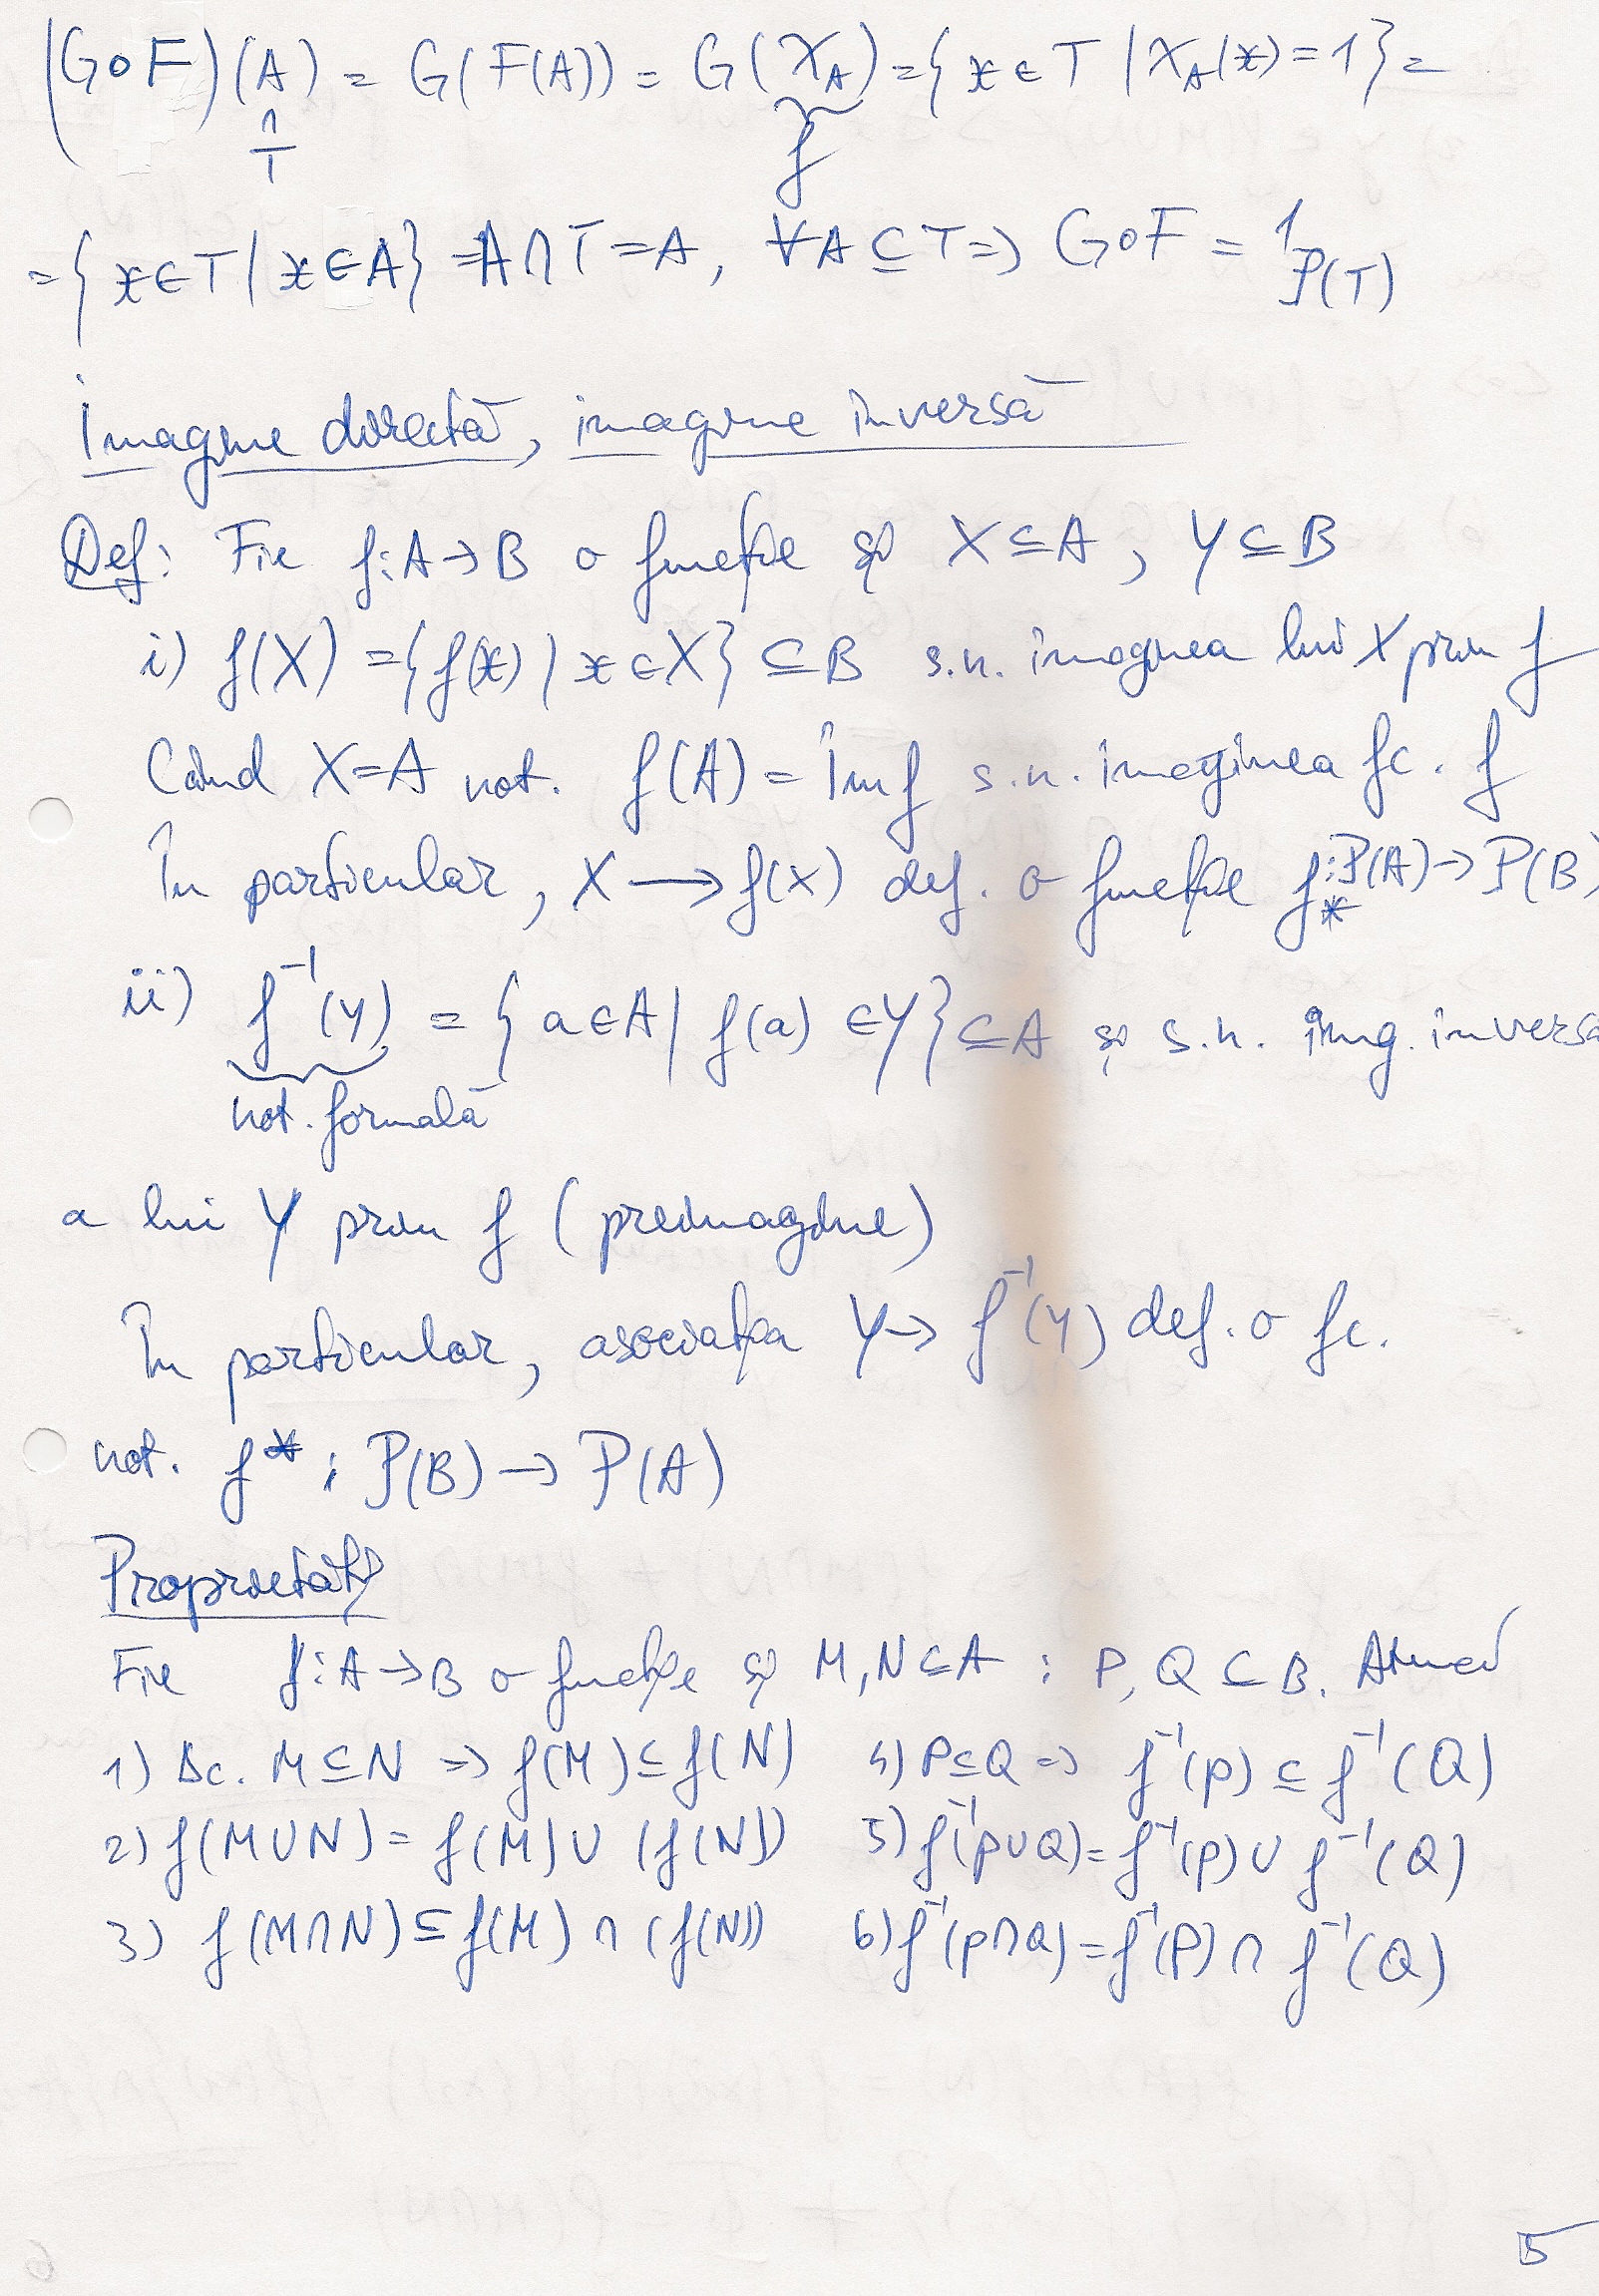 (G∘F)(A) = G(F(A)) = G(χ_A) = {x ∈ T | χ_A(x) = 1} =
∩
T
f
= {x ∈ T | x ∈ A} = A ∩ T = A, ∀A ⊆ T => G∘F = 1_P(T)
Imagine directă, imagine inversă
Def: Fie f: A → B o funcție și X ⊆ A, Y ⊆ B
i) f(X) = {f(x) | x ∈ X} ⊆ B s.n. imaginea lui X prin f
Când X = A not. f(A) = Im f s.n. imaginea fc. f
În particular, X → f(X) def. o funcție f_* : P(A) → P(B)
ii) f⁻¹(Y) = {a ∈ A | f(a) ∈ Y} ⊆ A și s.n. img. inversă
not. formală
a lui Y prin f (preimagine)
În particular, asociația Y → f⁻¹(Y) def. o fc.
not. f* : P(B) → P(A)
Proprietăți
Fie f: A → B o funcție și M, N ⊆ A ; P, Q ⊆ B. Atunci
1) Dc. M ⊆ N => f(M) ⊆ f(N) 4) P ⊆ Q => f⁻¹(P) ⊆ f⁻¹(Q)
2) f(M ∪ N) = f(M) ∪ (f(N)) 5) f⁻¹(P ∪ Q) = f⁻¹(P) ∪ f⁻¹(Q)
3) f(M ∩ N) ⊆ f(M) ∩ (f(N)) 6) f⁻¹(P ∩ Q) = f⁻¹(P) ∩ f⁻¹(Q)
5